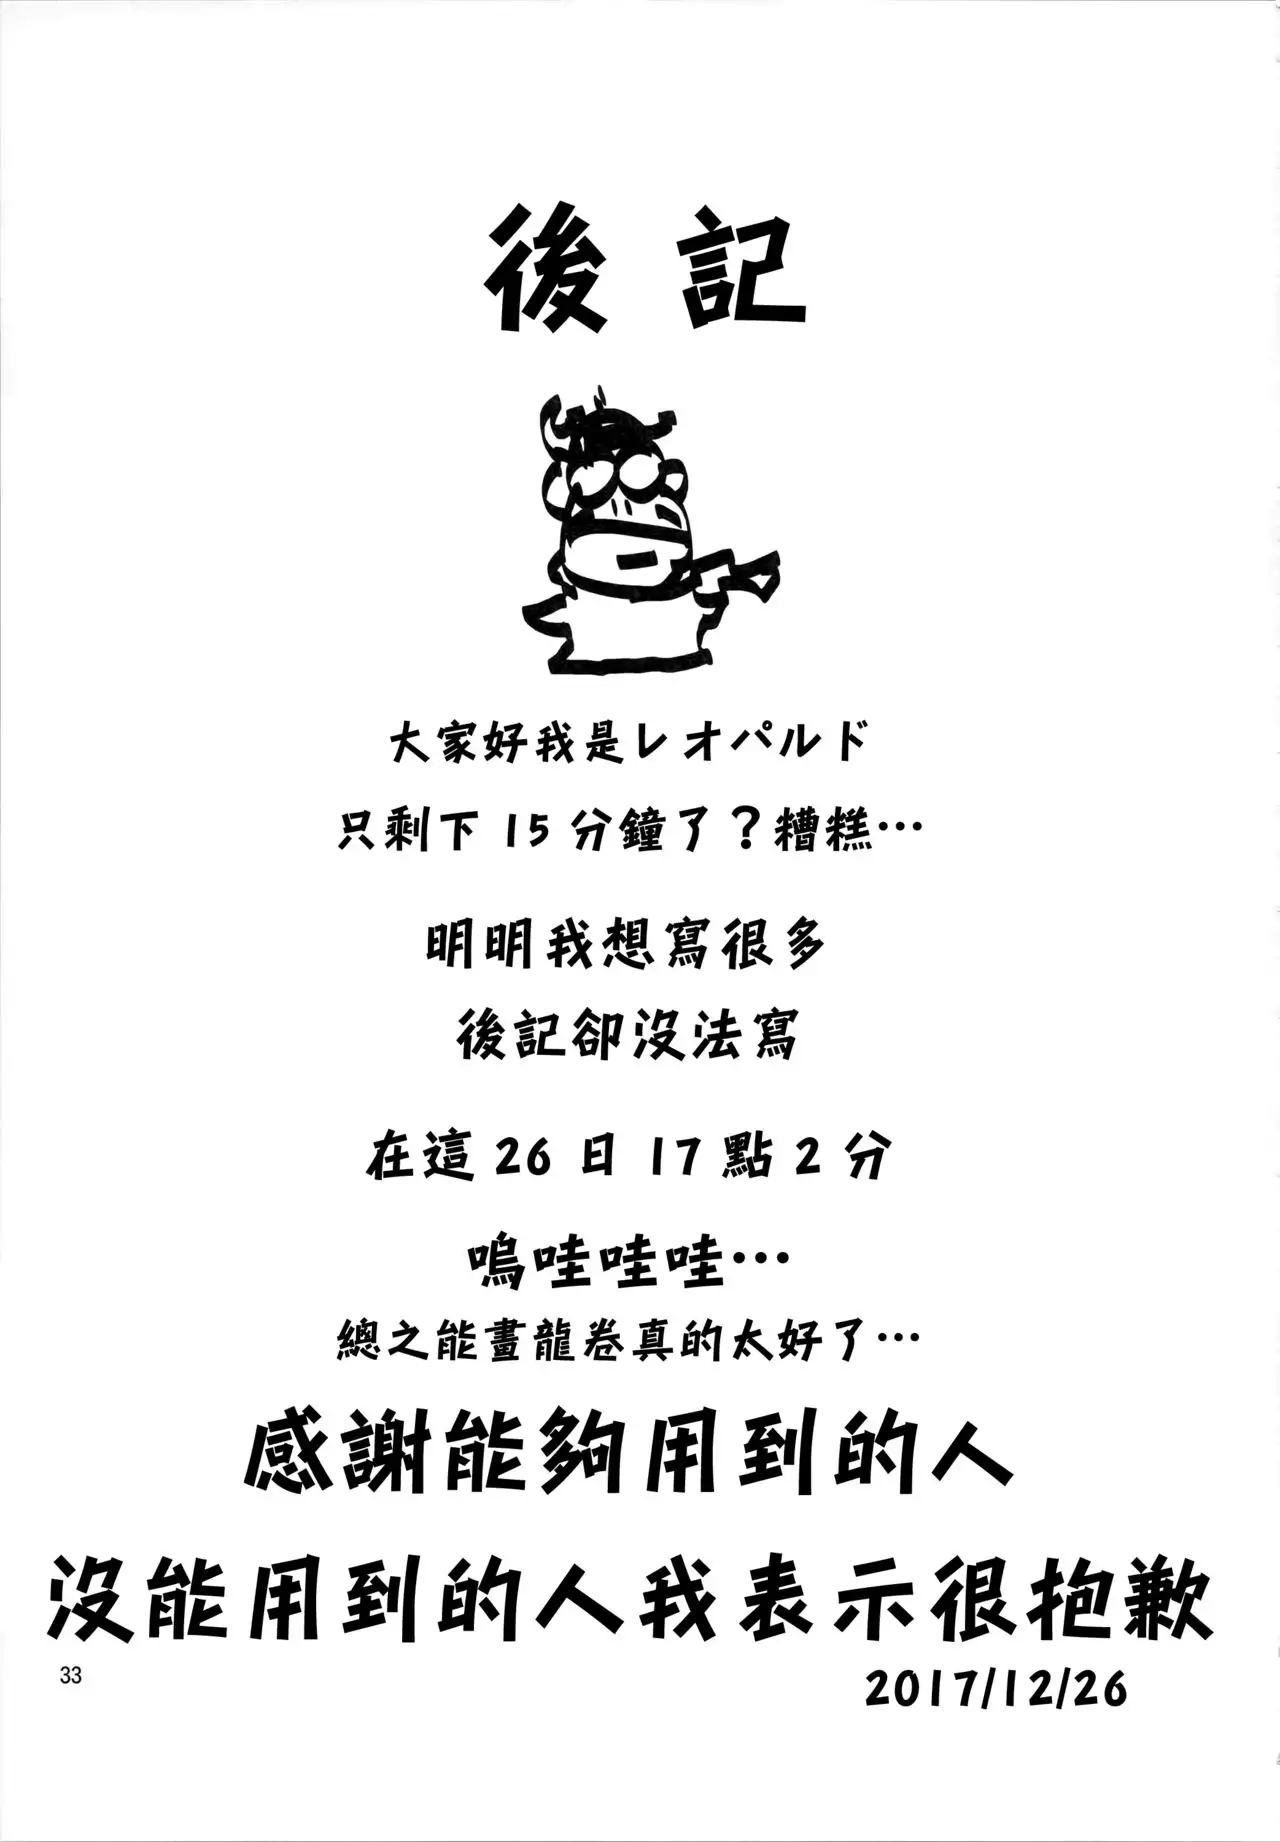 後記
大家好我是レオパルド
只剩下 15 分鐘了？糟糕…
明明我想寫很多
後記卻沒法寫
在這 26 日 17 點 2 分
嗚哇哇哇…
總之能畫龍卷真的太好了…
感謝能夠用到的人
沒能用到的人我表示很抱歉
33
2017/12/26